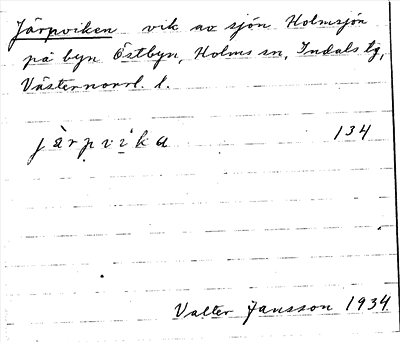 Järpviken vik av sjön Holmsjön
på byn Östbyn, Holms sn, Indals tg,
Västernorrl. l.
jàrpvika 134
Valter Jansson 1934